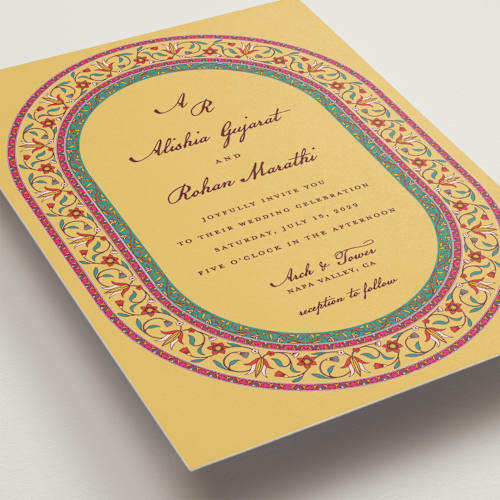 A R
Alishia Gujarat
AND
Rohan Marathi
JOYFULLY INVITE YOU
TO THEIR WEDDING CELEBRATION
SATURDAY, JULY 15, 2029
FIVE O'CLOCK IN THE AFTERNOON
Arch & Tower
NAPA VALLEY, CA
reception to follow